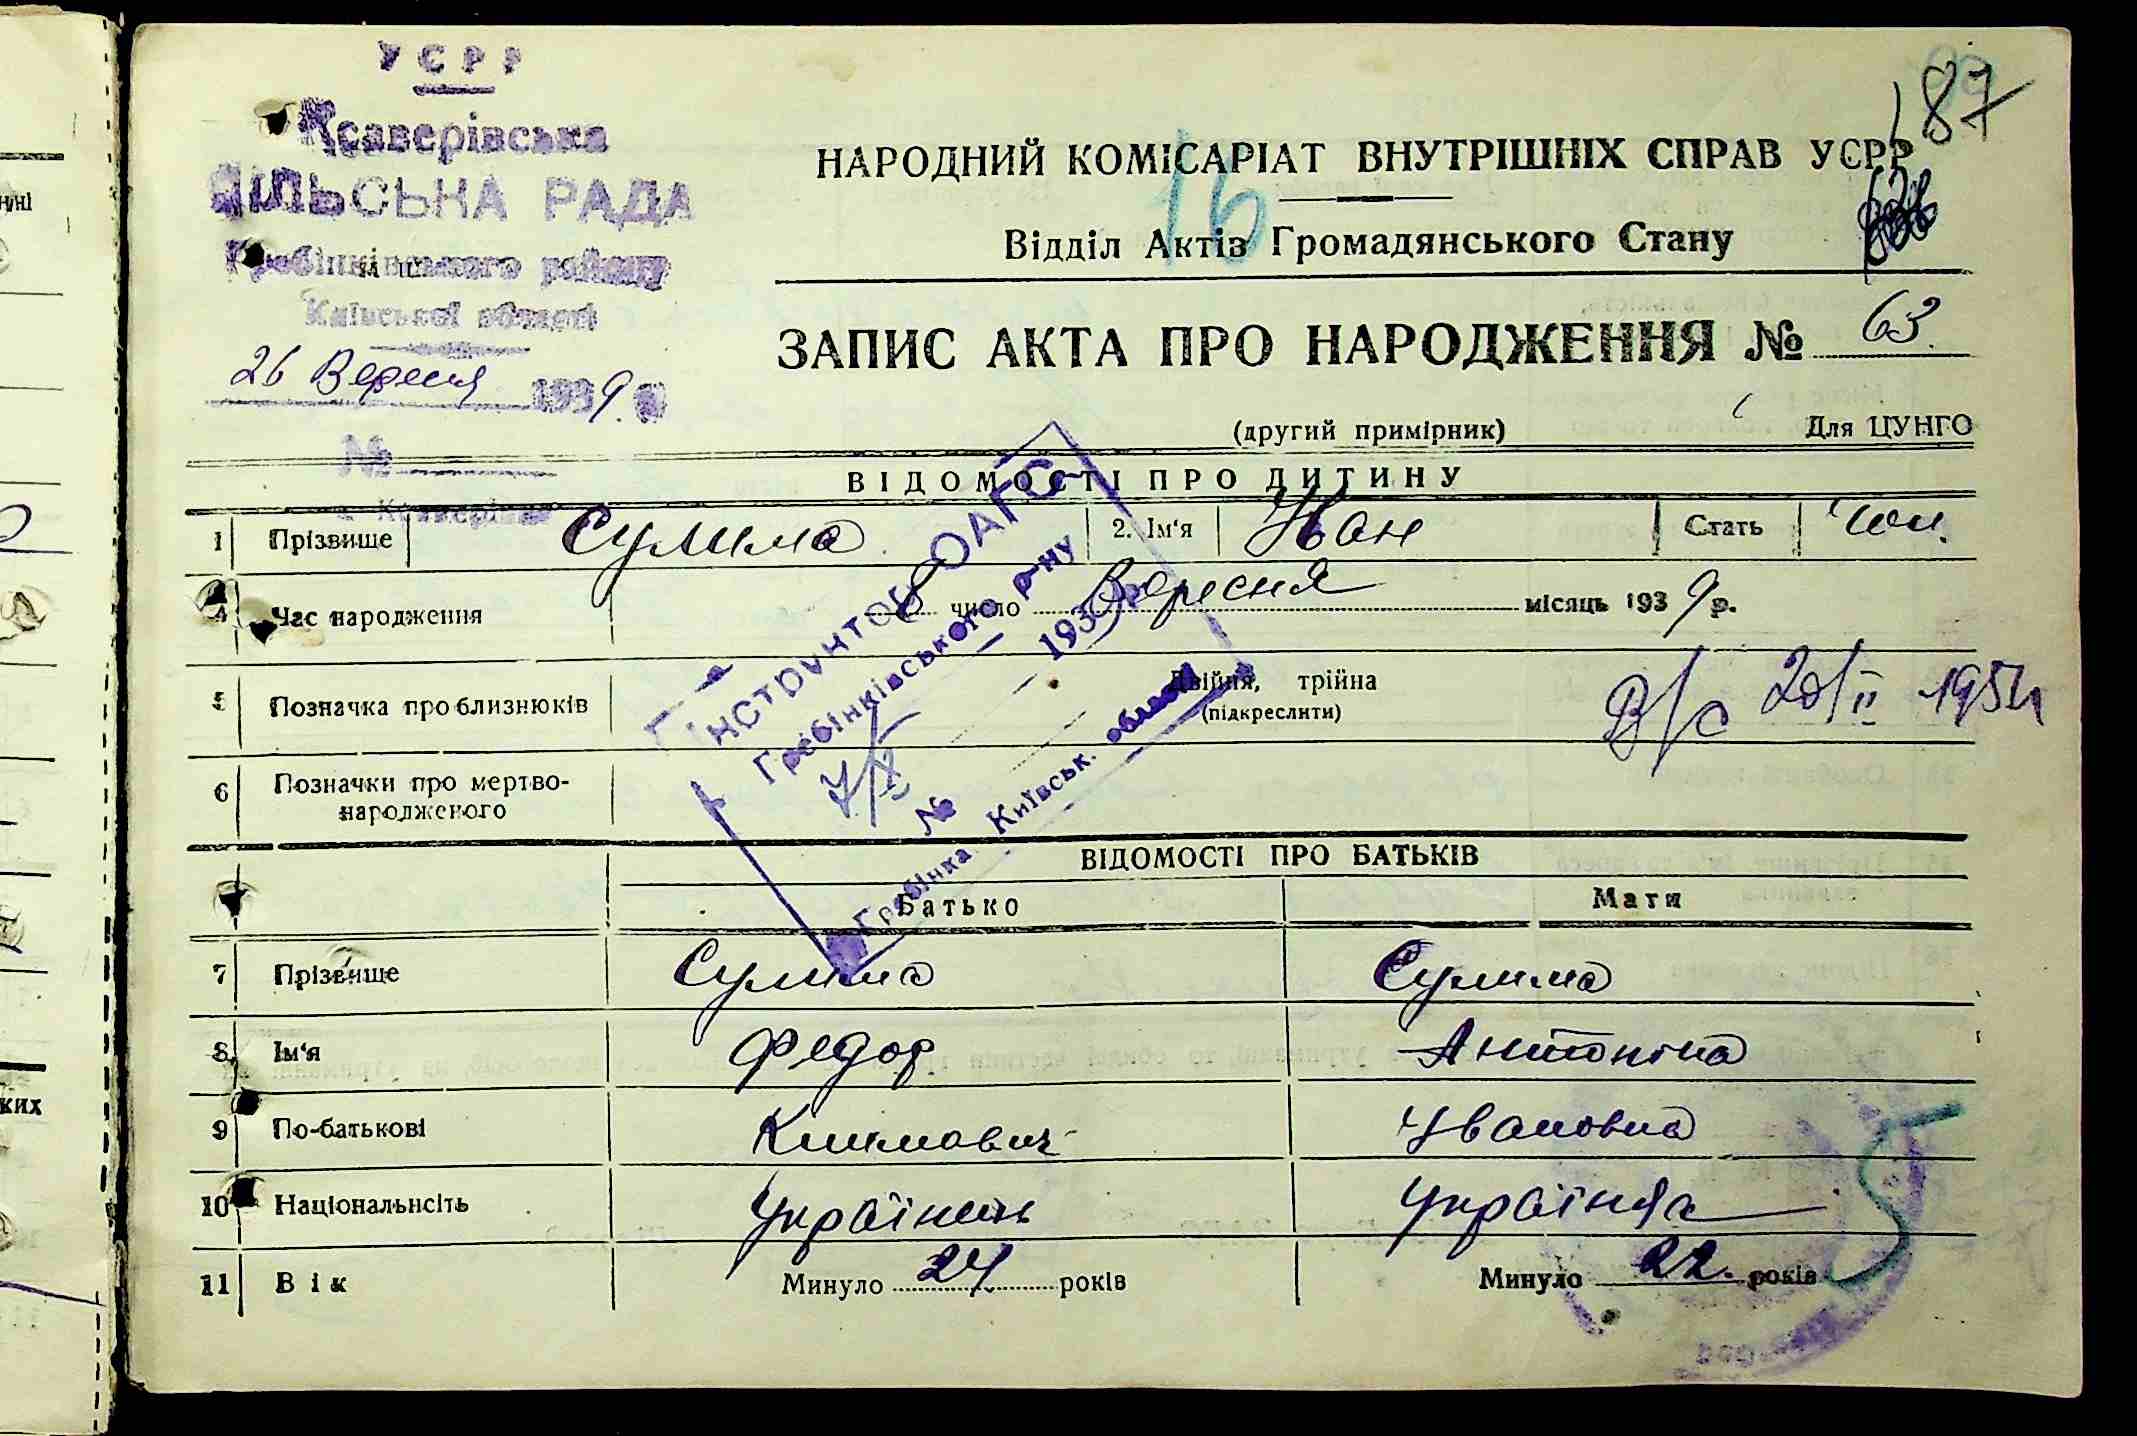 УСРР
Ксаверівська
СІЛЬСЬКА РАДА
Гребінківського району
Київської області
26 Вересня 1939 р
№
с. Ксаверівка
187
16
НАРОДНИЙ КОМІСАРІАТ ВНУТРІШНІХ СПРАВ УСРР
Відділ Актів Громадянського Стану
ЗАПИС АКТА ПРО НАРОДЖЕННЯ № 63.
(другий примірник) Для ЦУНГО
ВІДОМОСТІ ПРО ДИТИНУ
1 Прізвище Сулима 2. Ім'я Іван Стать чол.
4 Час народження 8 число Вересня місяць 1939 р.
5 Позначка про близнюків Двійня, трійна
(підкреслити)
В/с 20/II 1954
6 Позначки про мертво-
народженого
Інструктор ОАГС
Гребінківського р-ну
7/X 1939 р.
№
Гребінка Київськ. області
ВІДОМОСТІ ПРО БАТЬКІВ
Батько Мати
7 Прізвище Сулима Сулима
8. Ім'я Федор Антоніна
9 По-батькові Климович Ивановна
10 Національнсіть Українець Українка
11 Вік Минуло 24 років Минуло 22. років
5
них